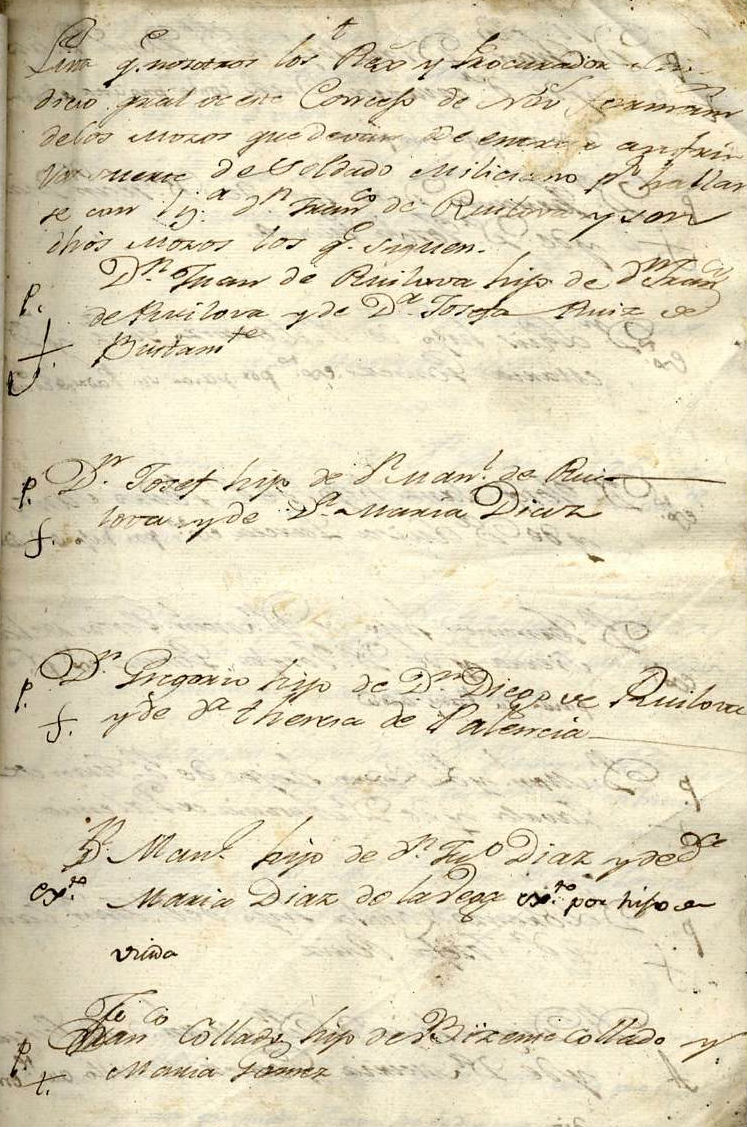 Lista q.e nosotros los Rex.t y Procurador Sin
dico gral de este Concejo de formam
de los mozos que devan de entrar en
suerte de Soldado Miliciano p.r hallar
se con d.n Fran.co de Ruilova y son
dhos mozos los q.e siguen.
P. D.n Juan de Ruilova hijo de d.n Fran.co
de Ruilova y de D.a Josefa Ruiz de
Bustam.te
P. D.n Josef hijo de d.n Man.l de Rui
f. lova y de D.a Maria Diaz
P. D.n Gregorio hijo de D.n Diego de Ruilova
f. y de d.a theresa de Palencia
D.n Man.l hijo de d.n Diaz y de D.a
ex.to Maria Diaz de la Vega ex.to por hijo de
viuda
Fran.co Collado hijo de Bizente Collado y
Maria Gomez